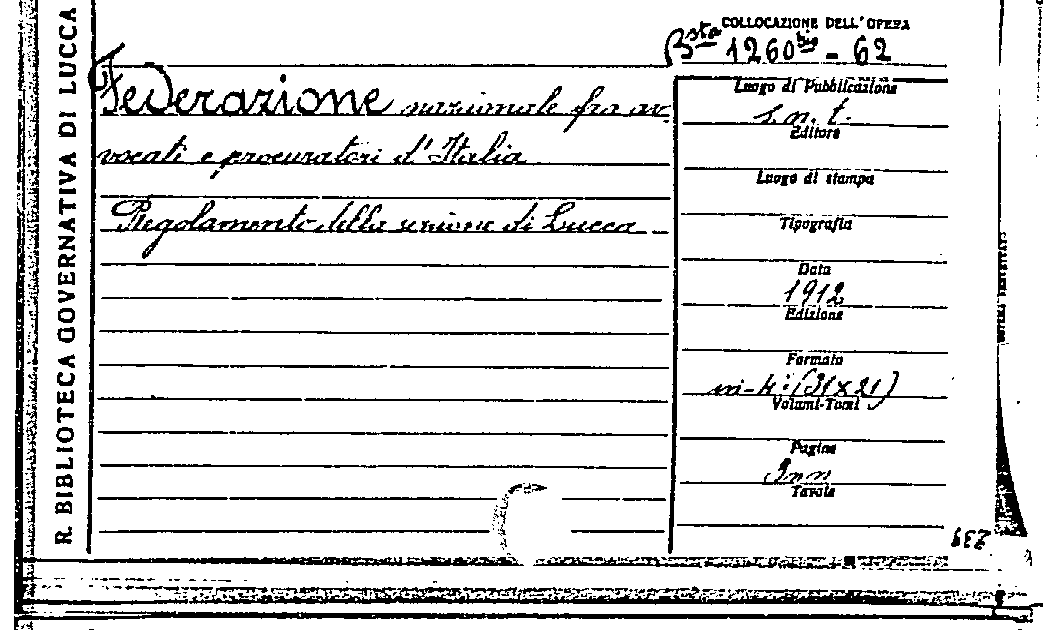 R. BIBLIOTECA GOVERNATIVA DI LUCCA
COLLOCAZIONE DELL'OPERA
Bsta 1260bis - 62
Federazione nazionale fra av-
vocati e procuratori d'Italia
Regolamento della sezione di Lucca
Luogo di Pubblicazione
s. n. t.
Editore
Luogo di stampa
Tipografia
Data
1912
Edizione
Formato
in-4° (31x21)
Volumi-Tomi
Pagine
Tavole